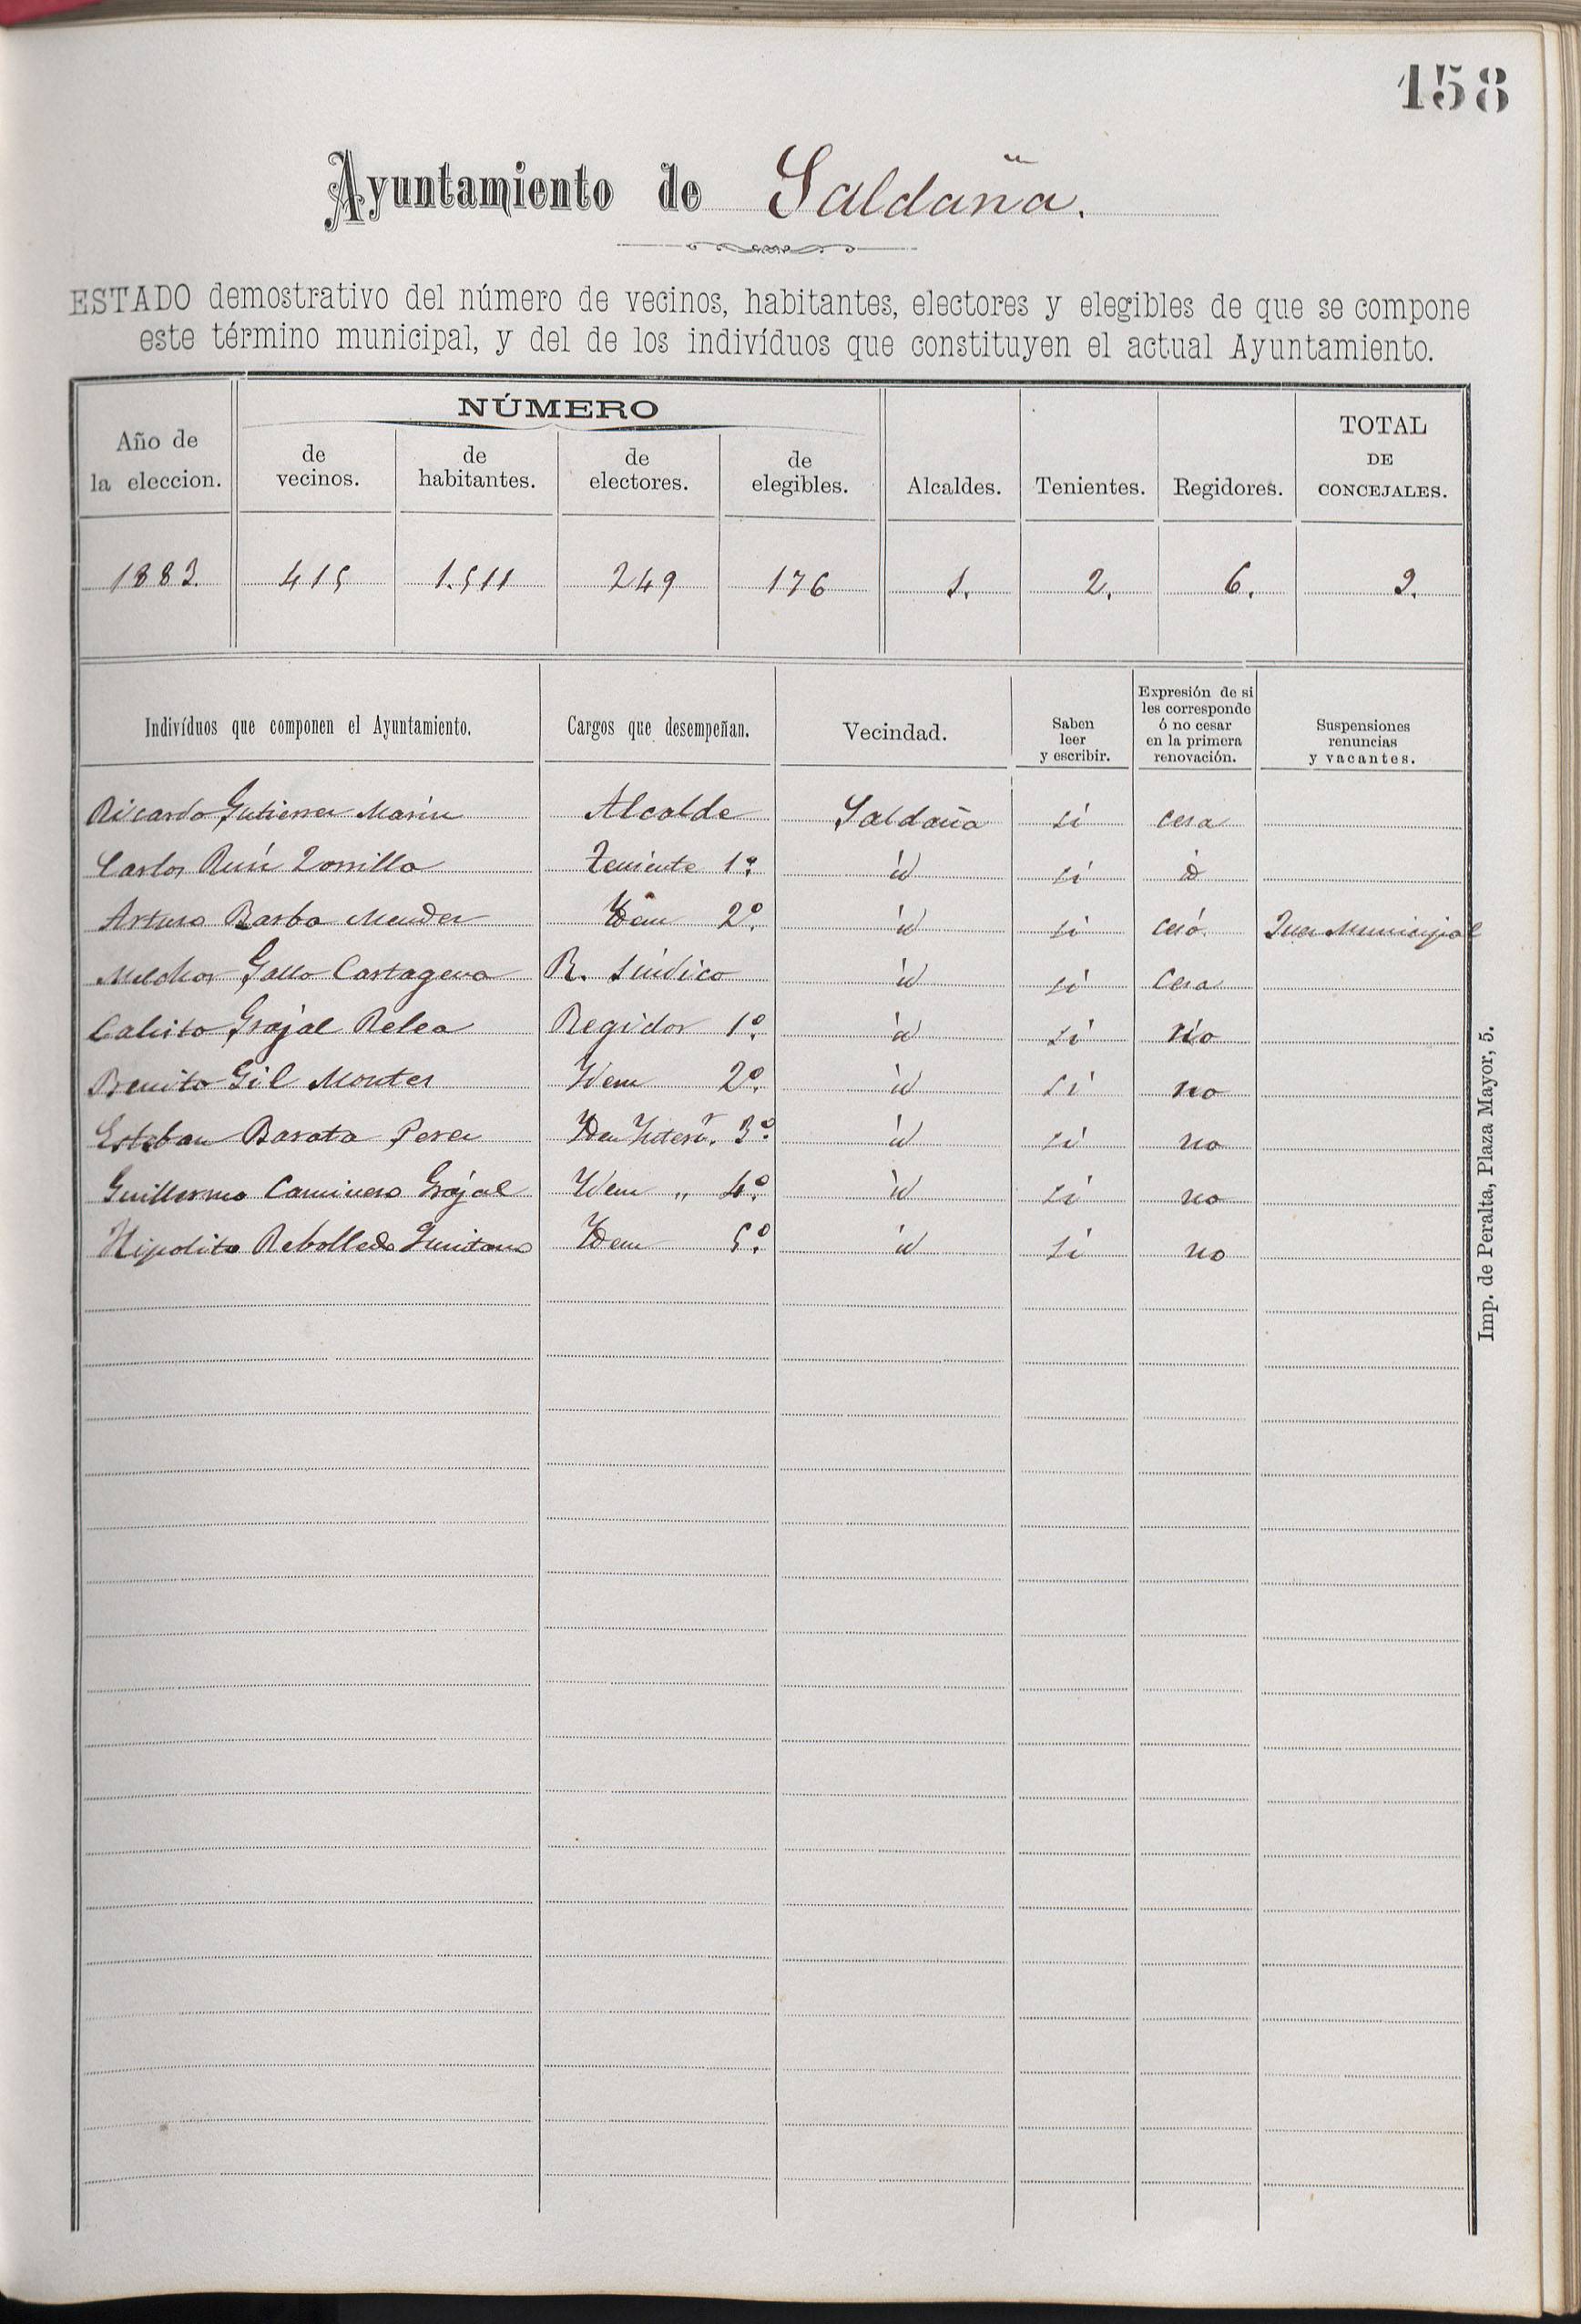 158
Ayuntamiento de Saldaña.
ESTADO demostrativo del número de vecinos, habitantes, electores y elegibles de que se compone
este término municipal, y del de los indivíduos que constituyen el actual Ayuntamiento.
Año de la eleccion.
NÚMERO
de vecinos.
de habitantes.
de electores.
de elegibles.
Alcaldes.
Tenientes.
Regidores.
TOTAL DE CONCEJALES.
1883. 415 1.511 249 176 1. 2. 6. 9.
Indivíduos que componen el Ayuntamiento.
Cargos que desempeñan.
Vecindad.
Saben leer y escribir.
Expresión de si les corresponde ó no cesar en la primera renovación.
Suspensiones renuncias y vacantes.
Ricardo Gutierrez Marin Alcalde Saldaña si cesa
Carlos Ruiz Zorrilla Teniente 1º. id si id
Arturo Barba Mendez Idem 2º. id si cesó. Juez Municipal
Melchor Gallo Cartagena R. Síndico id si Cesa
Calisto Grajal Relea Regidor 1º. id si no
Benito Gil Montes Idem 2º. id si no
Esteban Barata Perez Idem Interº. 3º. id si no
Guillermo Caminero Grajal Idem „ 4º. id si no
Hipolito Rebolledo Quintana Idem 5º. id si no
Imp. de Peralta, Plaza Mayor, 5.